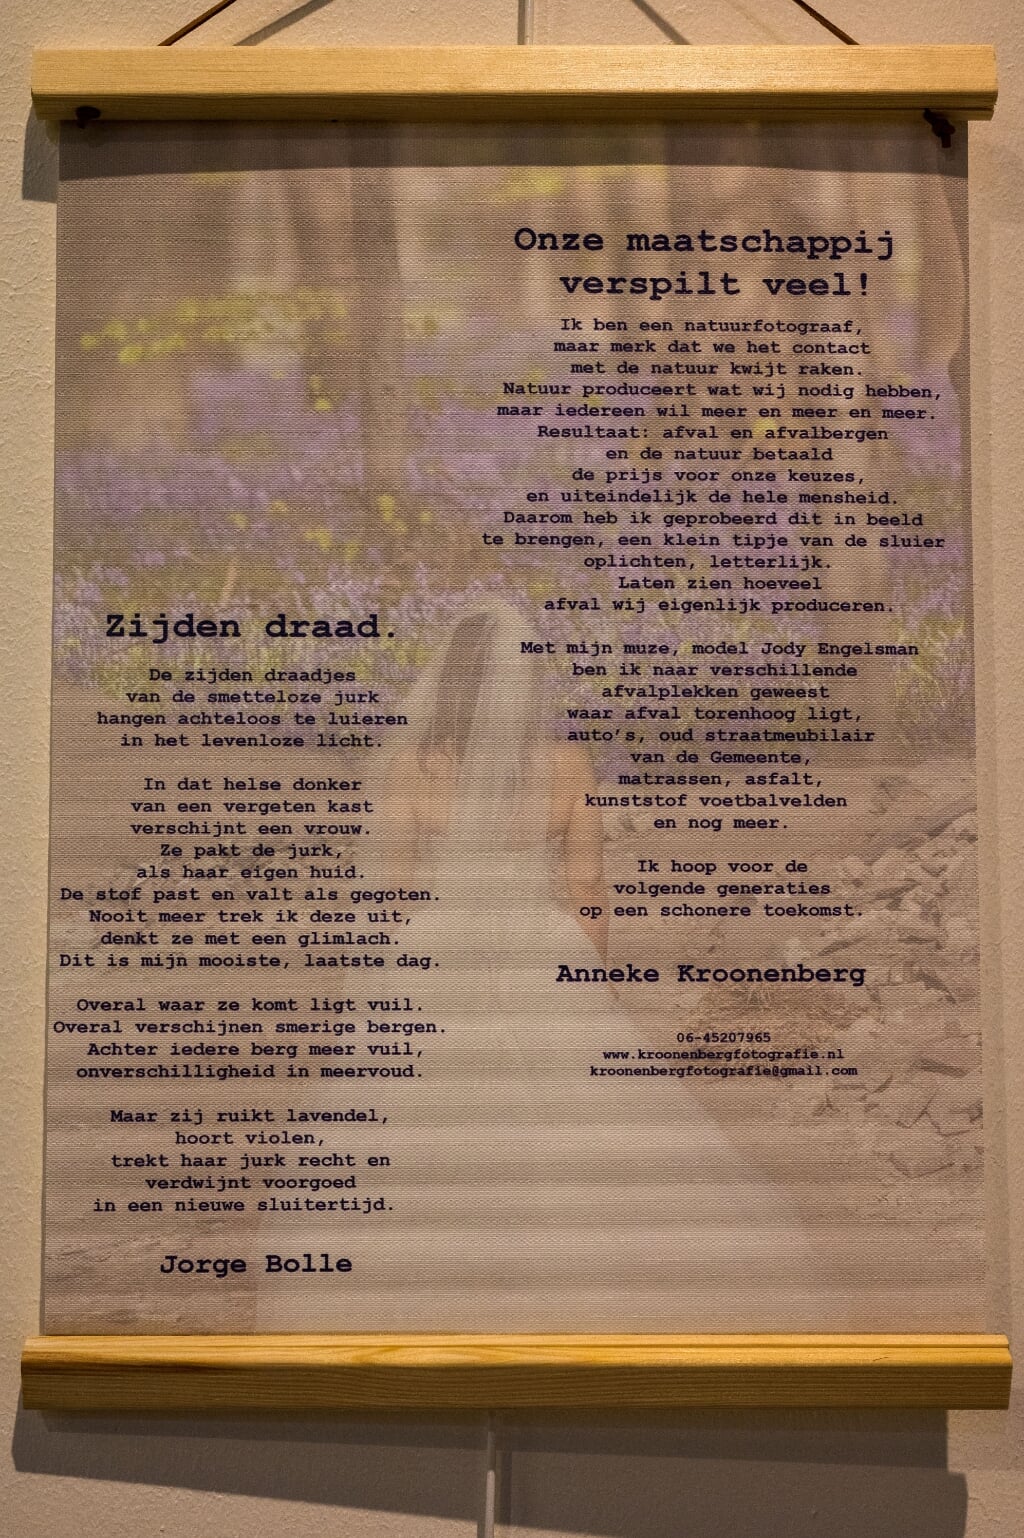 Zijden draad.
De zijden draadjes
van de smetteloze jurk
hangen achteloos te luieren
in het levenloze licht.
In dat helse donker
van een vergeten kast
verschijnt een vrouw.
Ze pakt de jurk,
als haar eigen huid.
De stof past en valt als gegoten.
Nooit meer trek ik deze uit,
denkt ze met een glimlach.
Dit is mijn mooiste, laatste dag.
Overal waar ze komt ligt vuil.
Overal verschijnen smerige bergen.
Achter iedere berg meer vuil,
onverschilligheid in meervoud.
Maar zij ruikt lavendel,
hoort violen,
trekt haar jurk recht en
verdwijnt voorgoed
in een nieuwe sluitertijd.
Jorge Bolle
Onze maatschappij
verspilt veel!
Ik ben een natuurfotograaf,
maar merk dat we het contact
met de natuur kwijt raken.
Natuur produceert wat wij nodig hebben,
maar iedereen wil meer en meer en meer.
Resultaat: afval en afvalbergen
en de natuur betaald
de prijs voor onze keuzes,
en uiteindelijk de hele mensheid.
Daarom heb ik geprobeerd dit in beeld
te brengen, een klein tipje van de sluier
oplichten, letterlijk.
Laten zien hoeveel
afval wij eigenlijk produceren.
Met mijn muze, model Jody Engelsman
ben ik naar verschillende
afvalplekken geweest
waar afval torenhoog ligt,
auto's, oud straatmeubilair
van de Gemeente,
matrassen, asfalt,
kunststof voetbalvelden
en nog meer.
Ik hoop voor de
volgende generaties
op een schonere toekomst.
Anneke Kroonenberg
06-45207965
www.kroonenbergfotografie.nl
kroonenbergfotografie@gmail.com